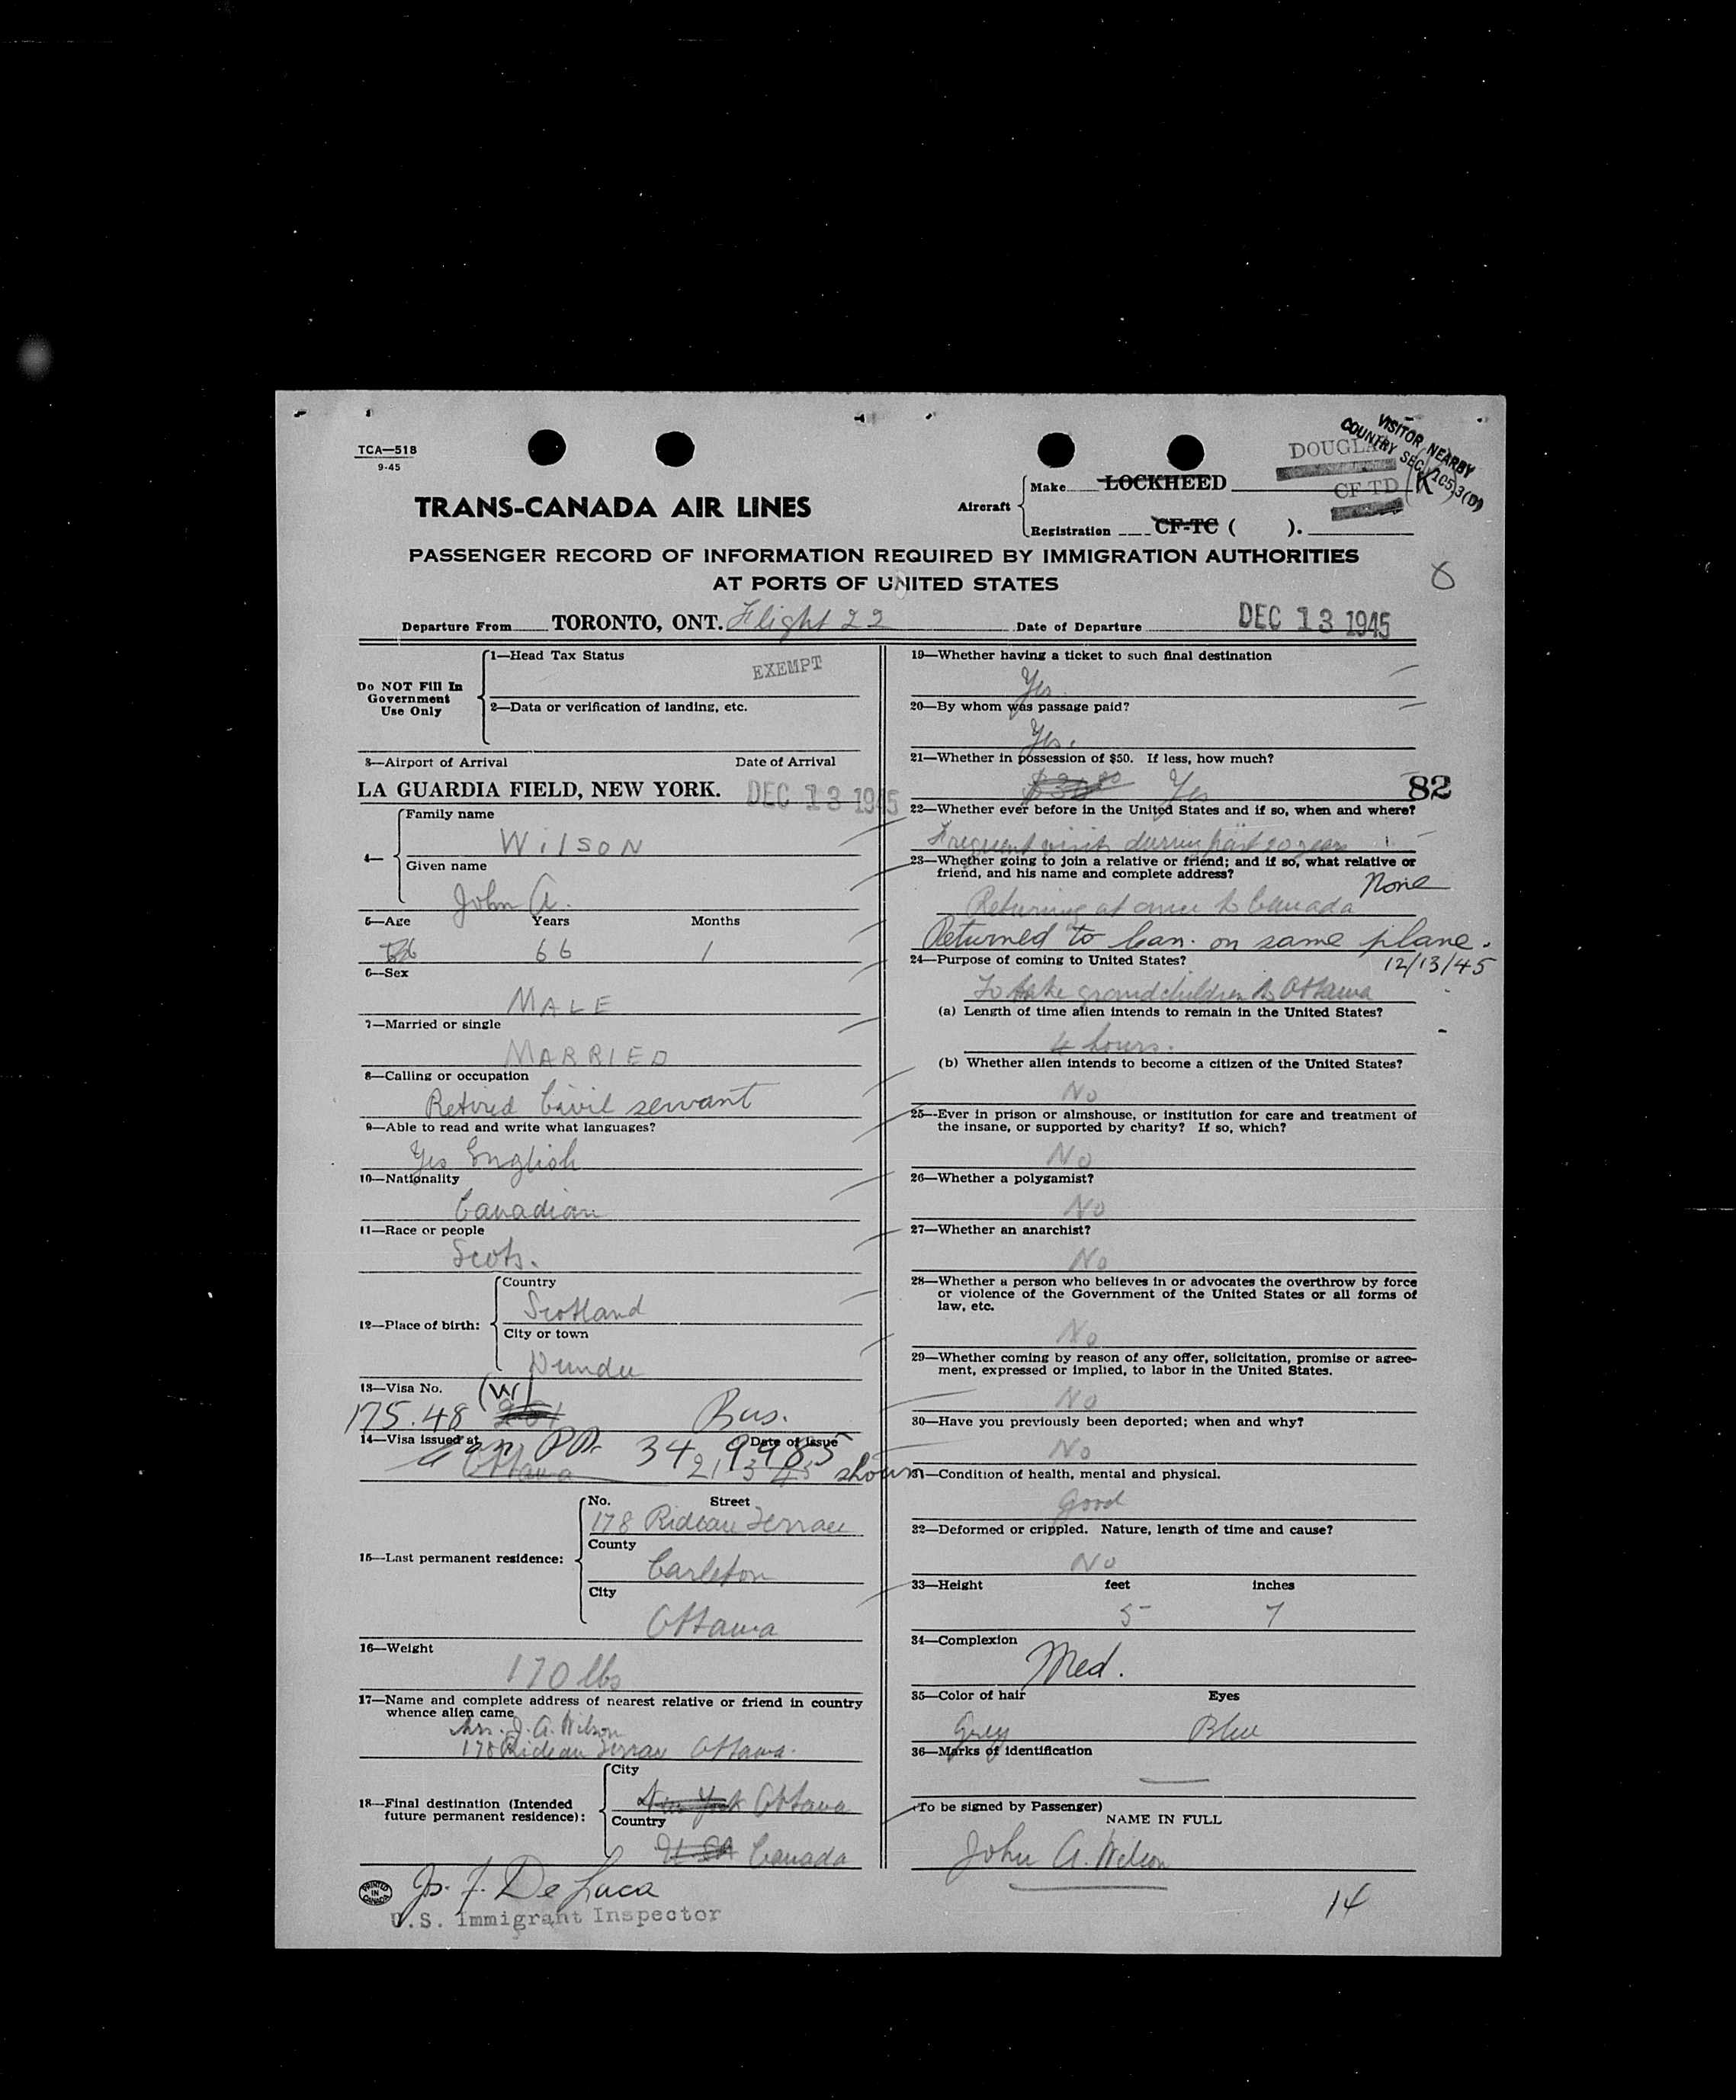 TCA—518
9-45
VISITOR NEARBY
COUNTRY SEC.
DOUGLAS
TRANS-CANADA AIR LINES
Aircraft
Make LOCKHEED
CF-TD (K)
Registration CF-TC ( ).
PASSENGER RECORD OF INFORMATION REQUIRED BY IMMIGRATION AUTHORITIES
AT PORTS OF UNITED STATES
8
Departure From TORONTO, ONT. Flight 22 Date of Departure DEC 13 1945
Do NOT Fill In
Government
Use Only
1—Head Tax Status
EXEMPT
2—Data or verification of landing, etc.
3—Airport of Arrival Date of Arrival
LA GUARDIA FIELD, NEW YORK. DEC 13 1945
4—
Family name
WILSON
Given name
John A.
5—Age Years Months
66 1
6—Sex
MALE
7—Married or single
MARRIED
8—Calling or occupation
Retired Civil servant
9—Able to read and write what languages?
Yes English
10—Nationality
Canadian
11—Race or people
Scots.
12—Place of birth:
Country
Scotland
City or town
Dundee
13—Visa No.
(W)
175.48 Bus.
14—Visa issued at Date of issue
Can PP. 349985 shown
Ottawa 21 3 45
15—Last permanent residence:
No. Street
178 Rideau Terrace
County
Carleton
City
Ottawa
16—Weight
170 lbs
17—Name and complete address of nearest relative or friend in country
whence alien came
Mrs. J. A. Wilson
178 Rideau Terrace Ottawa.
18—Final destination (Intended
future permanent residence):
City
New York Ottawa
Country
U.SA Canada
Js. F. De Luca
U.S. Immigrant Inspector
PRINTED
IN
CANADA
19—Whether having a ticket to such final destination
Yes
20—By whom was passage paid?
Yes.
21—Whether in possession of $50. If less, how much?
Yes
82
22—Whether ever before in the United States and if so, when and where?
Frequent visits during past 20 years
23—Whether going to join a relative or friend; and if so, what relative or
friend, and his name and complete address?
None
Returning at once to Canada
Returned to Can. on same plane.
12/13/45
24—Purpose of coming to United States?
To take grandchildren to Ottawa
(a) Length of time alien intends to remain in the United States?
4 hours.
(b) Whether alien intends to become a citizen of the United States?
No
25—Ever in prison or almshouse, or institution for care and treatment of
the insane, or supported by charity? If so, which?
No
26—Whether a polygamist?
No
27—Whether an anarchist?
No
28—Whether a person who believes in or advocates the overthrow by force
or violence of the Government of the United States or all forms of
law, etc.
No
29—Whether coming by reason of any offer, solicitation, promise or agree-
ment, expressed or implied, to labor in the United States.
No
30—Have you previously been deported; when and why?
No
31—Condition of health, mental and physical.
Good
32—Deformed or crippled. Nature, length of time and cause?
No
33—Height feet inches
5 7
34—Complexion
Med.
35—Color of hair Eyes
Grey Blue
36—Marks of identification
(To be signed by Passenger)
NAME IN FULL
John A. Wilson
14